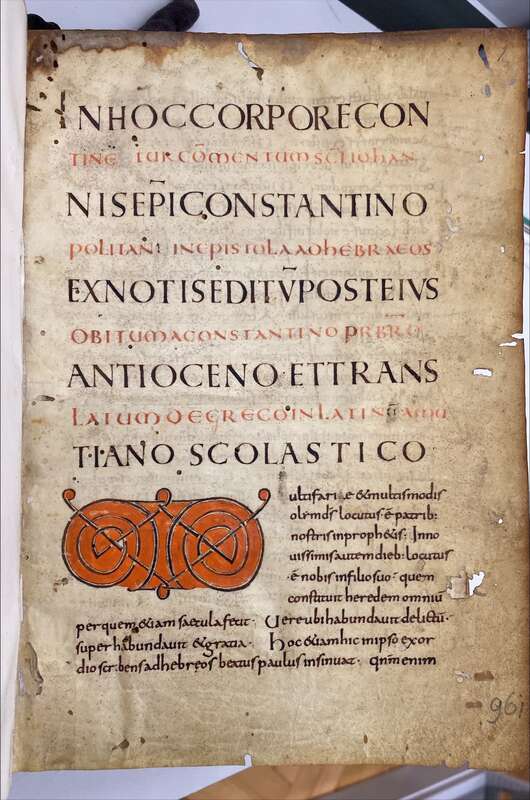 INHOCCORPORECON
TINE TUR CŌMENTUM SC̄I IOHAN
NISEP̄ICONSTANTINO
POLITANI INEPISTOLAADHEBRAEOS
EXNOTISEDITV̄POSTEIVS
OBITUMACONSTANTINO PRB̄RO
ANTIOCENO·ETTRANS
LATUMDEGRECOINLATINŪ AMU
TIANO SCOLASTICO
ultifarie &multismodis
olem dś locutus ē patrib:
nostris inproph&is· Inno
uissimisautem dieb: locutus
ē nobis infiliosuo· quem
constituit heredem omniū
perquem &iam saecula fecit· Uere ubi habundauit delictū·
super habundauit &gratia· hoc &iam hic inipso exor
dio scribens adhebreos beatus paulus insinuat· qnm enim
961